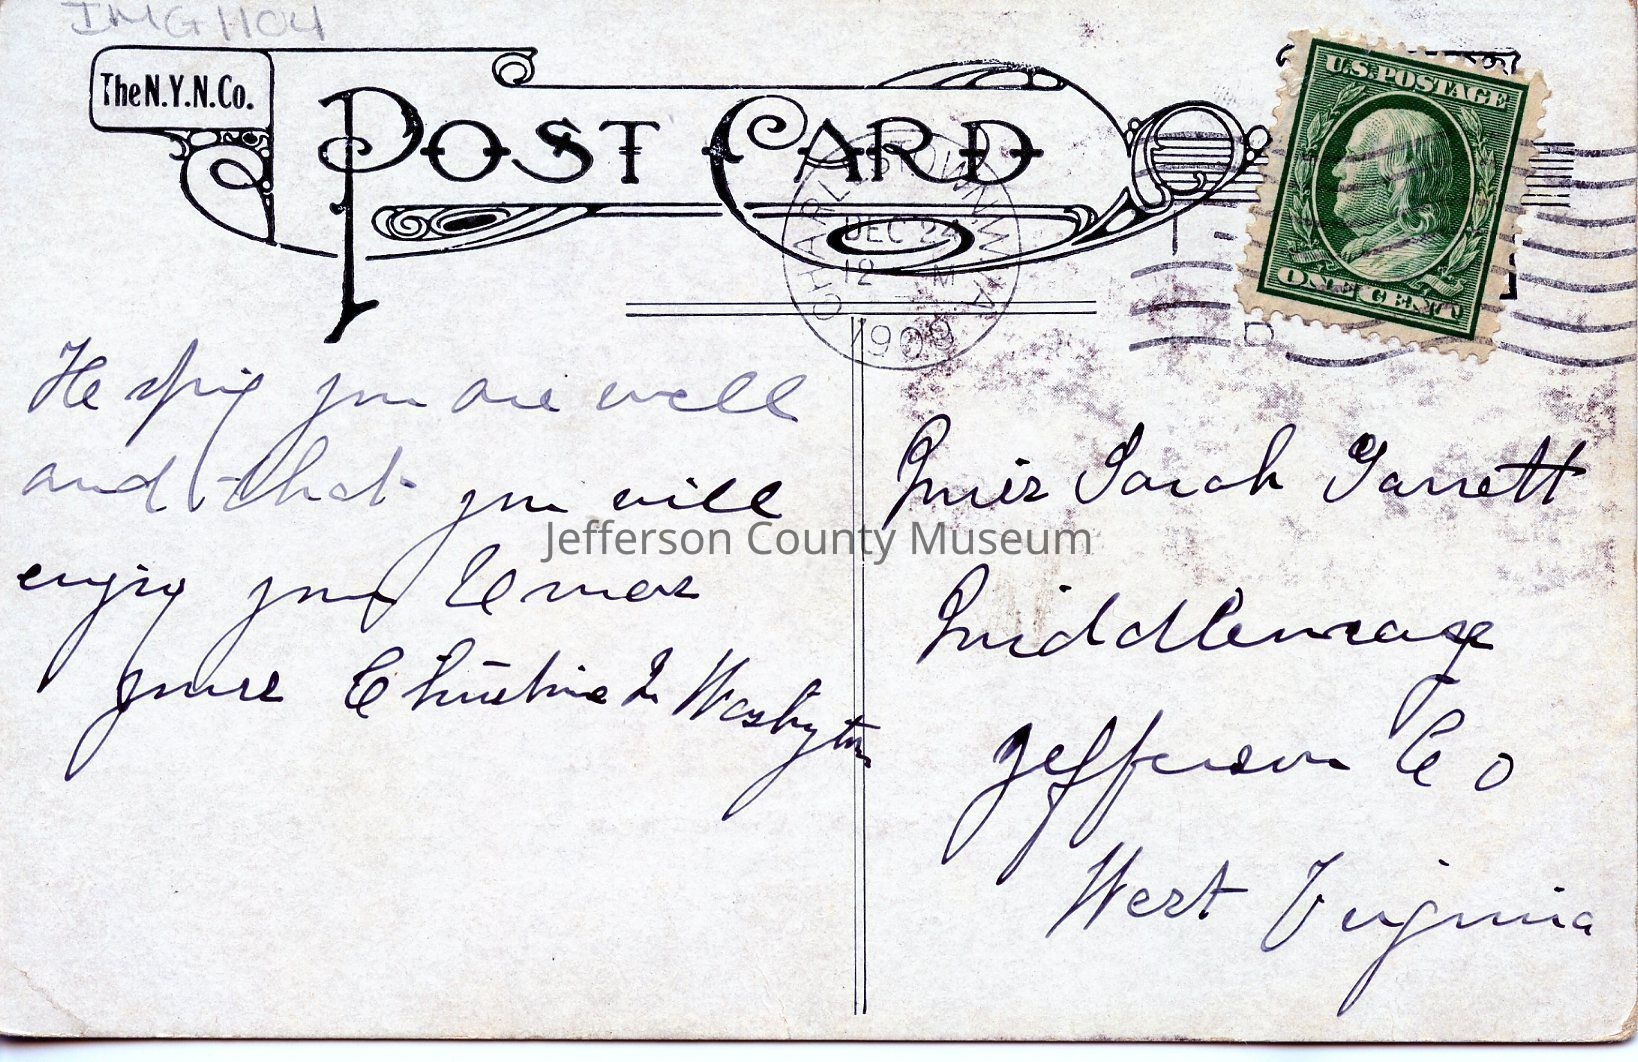 IMG1104
The N.Y.N.Co.
POST CARD
U.S. POSTAGE
ONE CENT
CHARLESTOWN W.VA.
DEC 24
12 M
1909
D
Hoping you are well
and that you will
enjoy your Xmas
yours Christine L Washington
Miss Sarah Garrett
Middleway
Jefferson Co
West Virginia
Jefferson County Museum